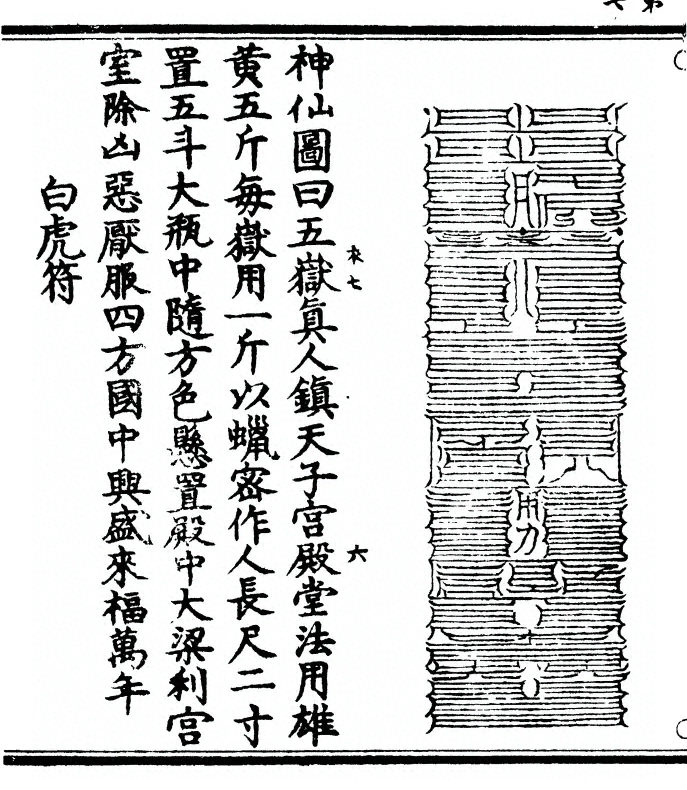 神仙圖曰五嶽真人鎮天子宮殿堂法用雄
黃五斤每嶽用一斤以蠟密作人長尺二寸
置五斗大瓶中隨方色懸置殿中大梁利宮
室除凶惡厭服四方國中興盛來福萬年
白虎符
衣七
六